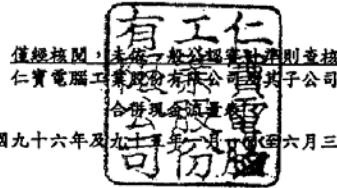 僅經核閱，未依一般公認審計準則查核
仁寶電腦工業股份有限公司及其子公司
合併現金流量表
國九十六年及九十五年一月一日至六月三
仁寶電腦
工業股份
有限公司